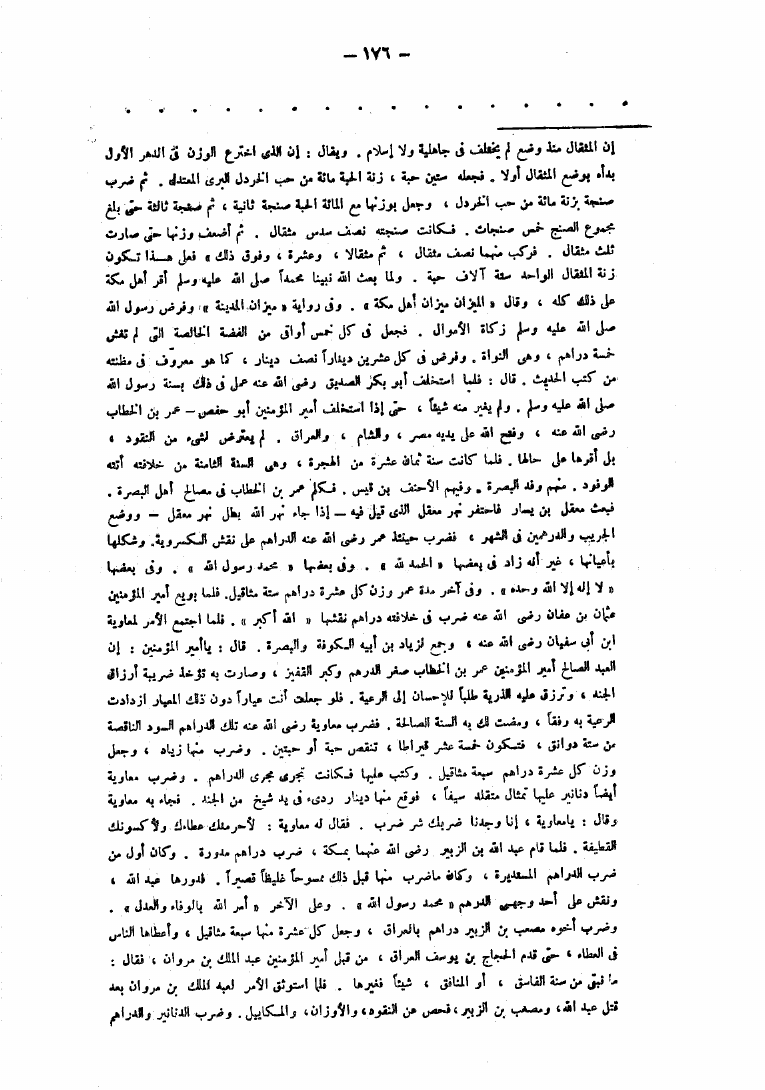 – ١٧٦ –
إن المثقال منذ وضع لم يختلف فى جاهلية ولا إسلام . ويقال : إن الذى اخترع الوزن فى الدهر الأول
بدأه بوضع المثقال أولا . فجعله ستين حبة ، زنة الحبة مائة من حب الخردل البرى المعتدل . ثم ضرب
صنجة بزنة مائة من حب الخردل ، وجعل بوزنها مع المائة الحبة صنجة ثانية ، ثم صنجة ثالثة حتى بلغ
مجموع الصنج خمس صنجات . فكانت صنجته نصف سدس مثقال . ثم أضعف وزنها حتى صارت
ثلث مثقال . فركب منهما نصف مثقال ، ثم مثقالا ، وعشرة ، وفوق ذلك » فعلى هذا تكون
زنة المثقال الواحد ستة آلاف حبة . ولما بعث الله نبينا محمداً صلى الله عليه وسلم أقر أهل مكة
على ذلك كله ، وقال « الميزان ميزان أهل مكة » . وفى رواية « ميزان المدينة » وفرض رسول الله
صلى الله عليه وسلم زكاة الأموال . فجعل فى كل خمس أواق من الفضة الخالصة التى لم تغش
خمسة دراهم ، وهى النواة . وفرض فى كل عشرين ديناراً نصف دينار ، كما هو معروف فى مظنته
من كتب الحديث . قال : فلما استخلف أبو بكر الصديق رضى الله عنه عمل فى ذلك بسنة رسول الله
صلى الله عليه وسلم . ولم يغير منه شيئاً ، حتى إذا استخلف أمير المؤمنين أبو حفص – عمر بن الخطاب
رضى الله عنه ، وفتح الله على يديه مصر ، والشام ، والعراق . لم يعترض لشىء من النقود ،
بل أقرها على حالها . فلما كانت سنة ثمان عشرة من الهجرة ، وهى السنة الثامنة من خلافته أتته
الوفود . منهم وفد البصرة . وفيهم الأحنف بن قيس . فكلم عمر بن الخطاب فى مصالح أهل البصرة .
فبعث معقل بن يسار فاحتفر نهر معقل الذى قيل فيه – إذا جاء نهر الله بطل نهر معقل – ووضع
الجريب والدرهمين فى الشهر ، فضرب حينئذ عمر رضى الله عنه الدراهم على نقش الكسروية . وشكلها
بأعيانها ، غير أنه زاد فى بعضها « الحمد لله » . وفى بعضها « محمد رسول الله » . وفى بعضها
« لا إله إلا الله وحده » . وفى آخر مدة عمر وزن كل عشرة دراهم ستة مثاقيل . فلما بويع أمير المؤمنين
عثمان بن عفان رضى الله عنه ضرب فى خلافته دراهم نقشها « الله أكبر » . فلما اجتمع الأمر لمعاوية
ابن أبى سفيان رضى الله عنه ، وجمع لزياد بن أبيه الكوفة والبصرة . قال : ياأمير المؤمنين : إن
العبد الصالح أمير المؤمنين عمر بن الخطاب صغر الدرهم وكبر القفيز ، وصارت به تؤخذ ضريبة أرزاق
الجند ، وترزق عليه الذرية طلباً للإحسان إلى الرعية . فلو جعلت أنت عياراً دون ذلك المعيار ازدادت
الرعية به رفقاً ، ومضت لك به السنة الصالحة . فضرب معاوية رضى الله عنه تلك الدراهم السود الناقصة
من ستة دوانق ، فتكون خمسة عشر قيراطا ، تنقص حبة أو حبتين . وضرب منها زياد ، وجعل
وزن كل عشرة دراهم سبعة مثاقيل . وكتب عليها فكانت تجرى مجرى الدراهم . وضرب معاوية
أيضاً دنانير عليها تمثال متقلد سيفاً ، فوقع منها دينار ردىء فى يد شيخ من الجند . فجاء به معاوية
وقال : يامعاوية ، إنا وجدنا ضربك شر ضرب . فقال له معاوية : لأحرمنك عطاءك ولأكسونك
القطيفة . فلما قام عبد الله بن الزبير رضى الله عنهما بمكة ، ضرب دراهم مدورة . وكان أول من
ضرب الدراهم المستديرة ، وكان ماضرب منها قبل ذلك ممسوحاً غليظاً قصيراً . فدورها عبد الله ،
ونقش على أحد وجهى الدرهم « محمد رسول الله » . وعلى الآخر « أمر الله بالوفاء والعدل » .
وضرب أخوه مصعب بن الزبير دراهم بالعراق ، وجعل كل عشرة منها سبعة مثاقيل ، وأعطاها الناس
فى العطاء ، حتى قدم الحجاج بن يوسف العراق ، من قبل أمير المؤمنين عبد الملك بن مروان ، فقال :
ما نبقى من سنة الفاسق ، أو المنافق ، شيئاً فغيرها . فلما استوثق الأمر لعبد الملك بن مروان بعد
قتل عبد الله ، ومصعب بن الزبير ، فحص عن النقود ، والأوزان ، والمكاييل . وضرب الدنانير والدراهم